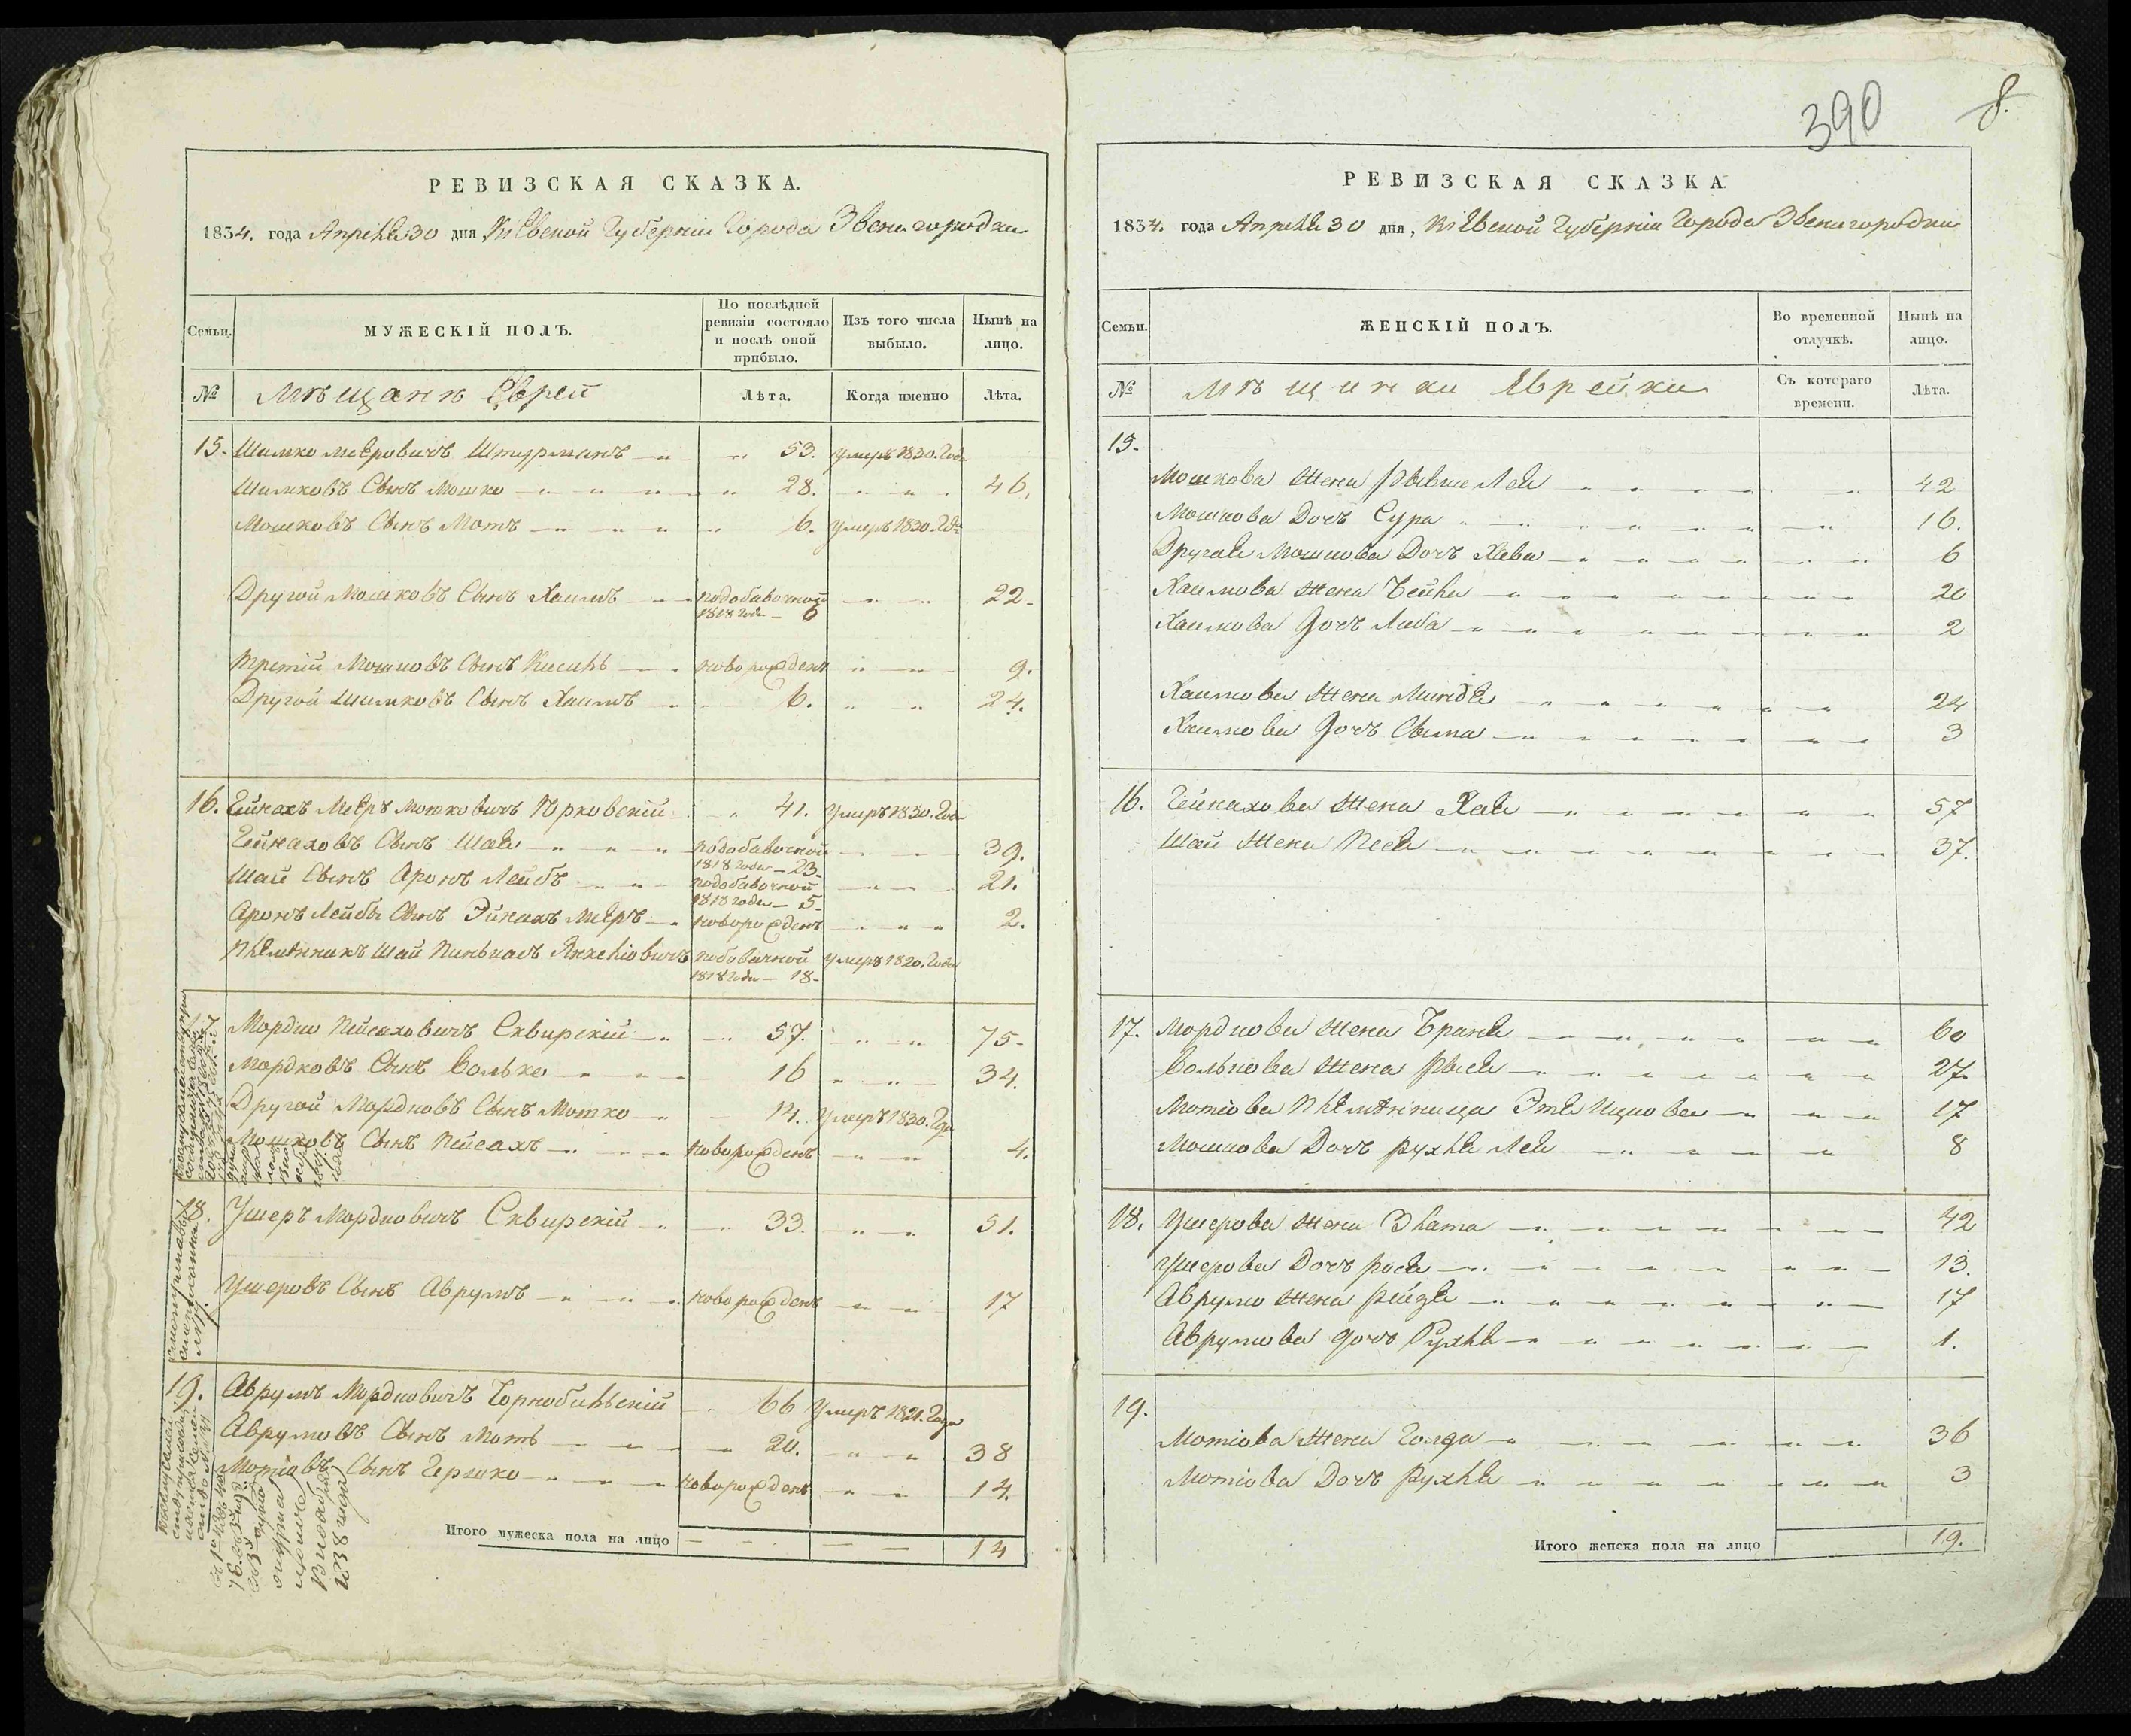 390
8.
РЕВИЗСКАЯ СКАЗКА.
1834. года Апреля 30 дня Киевской Губернии Города Звенигородки
Семьи.
МУЖЕСКІЙ ПОЛЪ.
По послѣдней ревизіи состояло и послѣ оной прибыло.
Изъ того числа выбыло.
Нынѣ на лицо.
№
Мѣщанѣ Евреи
Лѣта.
Когда именно
Лѣта.
15. Шимко Мееровичъ Штурманъ 53. умеръ 1830. Года
Шимковъ Сынъ Мошко 28. 46.
Мошковъ Сынъ Мотъ 6. умеръ 1830. Года
Другой Мошковъ Сынъ Хаимъ подобавочной 1818 года 6 22.
Третій Мошковъ Сынъ новорожденъ 9.
Другой Шимковъ Сынъ Хаимъ 6. 24.
16. Мееръ Мошковичъ 41. умеръ 1830. Года
Сынъ Шая подобавочной 1818 года 23. 39.
Шаи Сынъ Аронъ Лейбъ подобавочной 1818 года 5. 21.
Аронъ Лейбы Сынъ Эйнахъ Мееръ новорожденъ 2.
Племянникъ Шаи Пиньхасъ Янкелiовичъ 1818 года 18. умеръ 1820. Года
17 Мордко Пейсаховичъ Сквирскій 57. 75.
Мордковъ Сынъ Волько 16 34.
Другой Мордковъ Сынъ Мошко 14. умеръ 1830. Года
Мошковъ Сынъ Пейсахъ новорожденъ 4.
18. Ушеръ Мордковичъ Сквирскій 33. 51.
Ушеровъ Сынъ Аврумъ новорожденъ 17
19. Аврумъ Мордковичъ Чорнобильскій 66 умеръ 1821. Года
Аврумовъ Сынъ Моть 20. 38
Мотіовъ Сынъ Гершко новорожденъ 14.
Итого мужеска пола на лицо 14
РЕВИЗСКАЯ СКАЗКА.
1834. года Апреля 30 дня, Киевской Губерніи Города Звенигородки
Семьи.
ЖЕНСКІЙ ПОЛЪ.
Во временной отлучкѣ.
Нынѣ на лицо.
№
Мѣщанки Еврейки
Съ котораго времени.
Лѣта.
15.
Мошкова Жена Рывше Лея 42
Мошкова Дочъ Сура 16.
Другая Мошкова Дочъ Хава 6
Хаимова Жена Бейла 20
Хаимова Дочъ Либа 2
Хаимова Жена Миндя 24
Хаимова Дочъ Сыма 3
16. Жена Хая 57
Шаи Жена Песя 37.
17. Мордкова Жена Браня 60
Волькова Жена Рыся 27.
Мотіова Племянница Этя Ицкова 17
Мошкова Дочъ Рухля Лея 8
18. Ушерова Жена Злата 42
Ушерова Дочъ Рося 13.
Аврумо Жена Рейзя 17
Аврумова дочъ Рухля 1.
19.
Мотіова Жена Голда 36
Мотіова Дочъ Рухля 3
Итого женска пола на лицо 19.